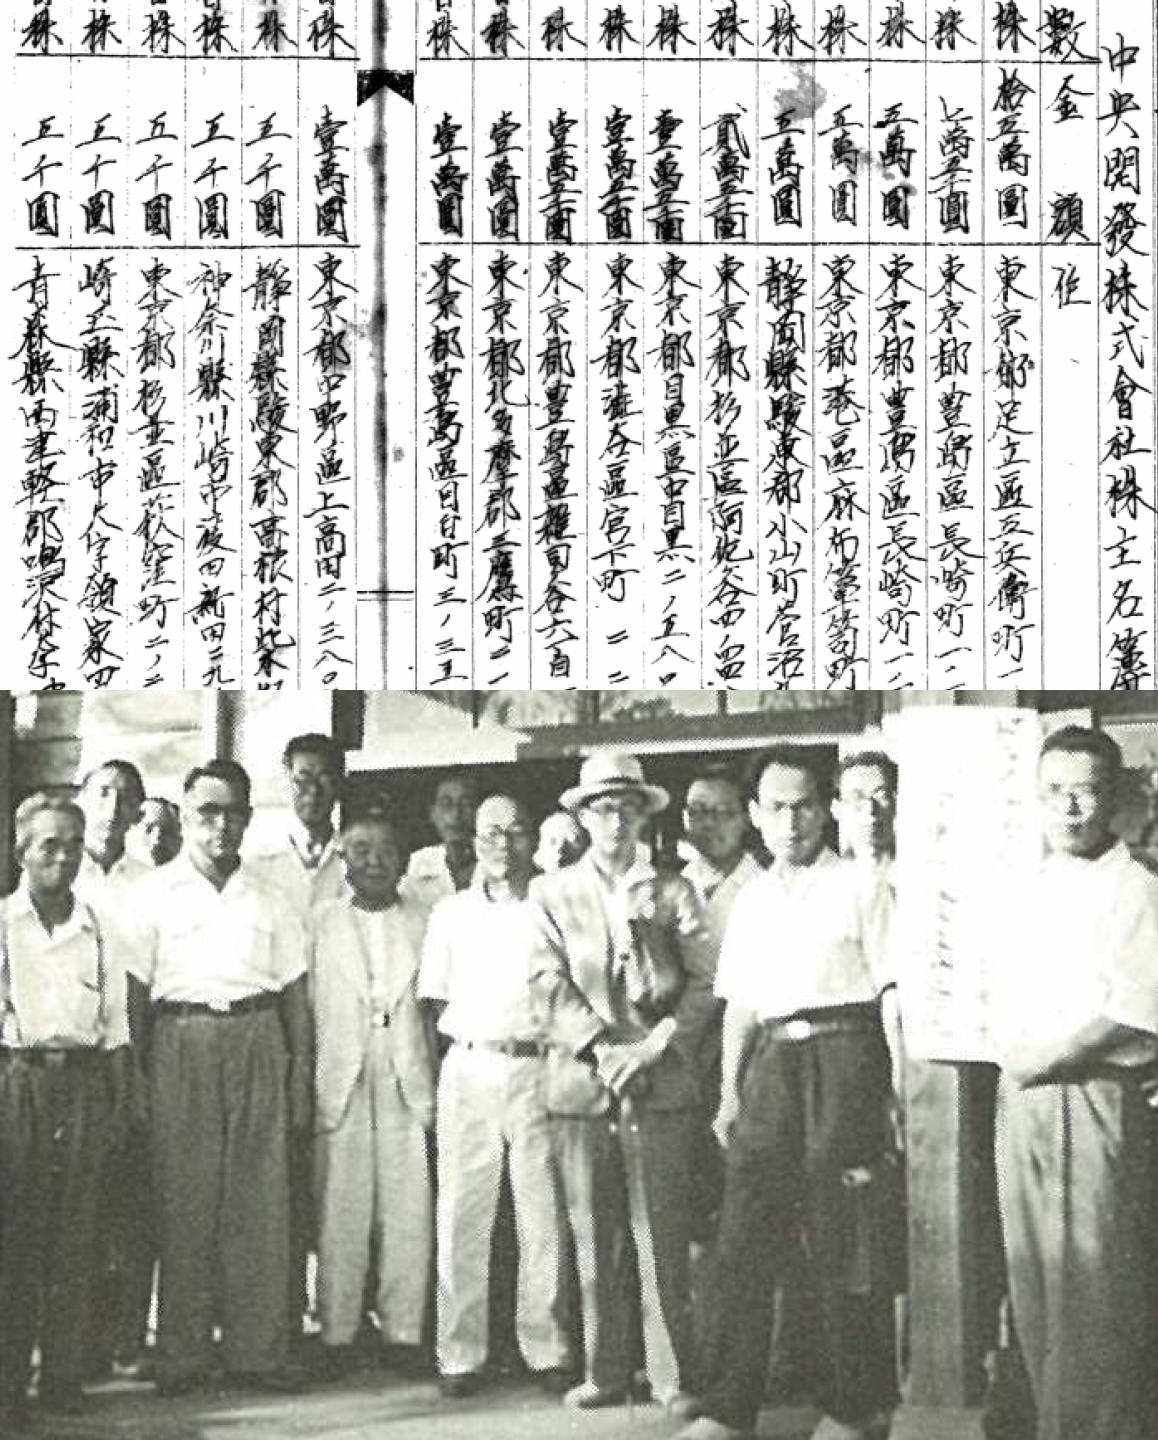 中央開發株式會社株主名簿
數 金額 住
株 拾五萬圓 東京都足立區五兵衛町一
株 七萬五千圓 東京都豊島區長崎町一、
株 五萬圓 東京都豊島區長崎町一、
株 五萬圓 東京都港區麻布簞笥町
株 五萬圓 靜岡縣駿東郡小山町菅沼
株 貳萬五千圓 東京都杉並區阿佐谷四ノ
株 壹萬五千圓 東京都目黒區中目黒二ノ五八
株 壹萬五千圓 東京都澁谷區宮下町二二
株 壹萬五千圓 東京都豊島區雜司ヶ谷六
株 壹萬圓 東京都北多摩郡三鷹町
株 壹萬圓 東京都豊島區目白町三ノ三五
株 壹萬圓 東京都中野區上高田二ノ三八〇
株 五千圓 靜岡縣駿東郡高根村
株 五千圓 神奈川縣川崎市渡田新田二九
株 五千圓 東京都杉並區荻窪町二ノ二
株 五千圓 崎玉縣浦和市大字領家四
株 五千圓 青森縣西津輕郡鳴沢村字